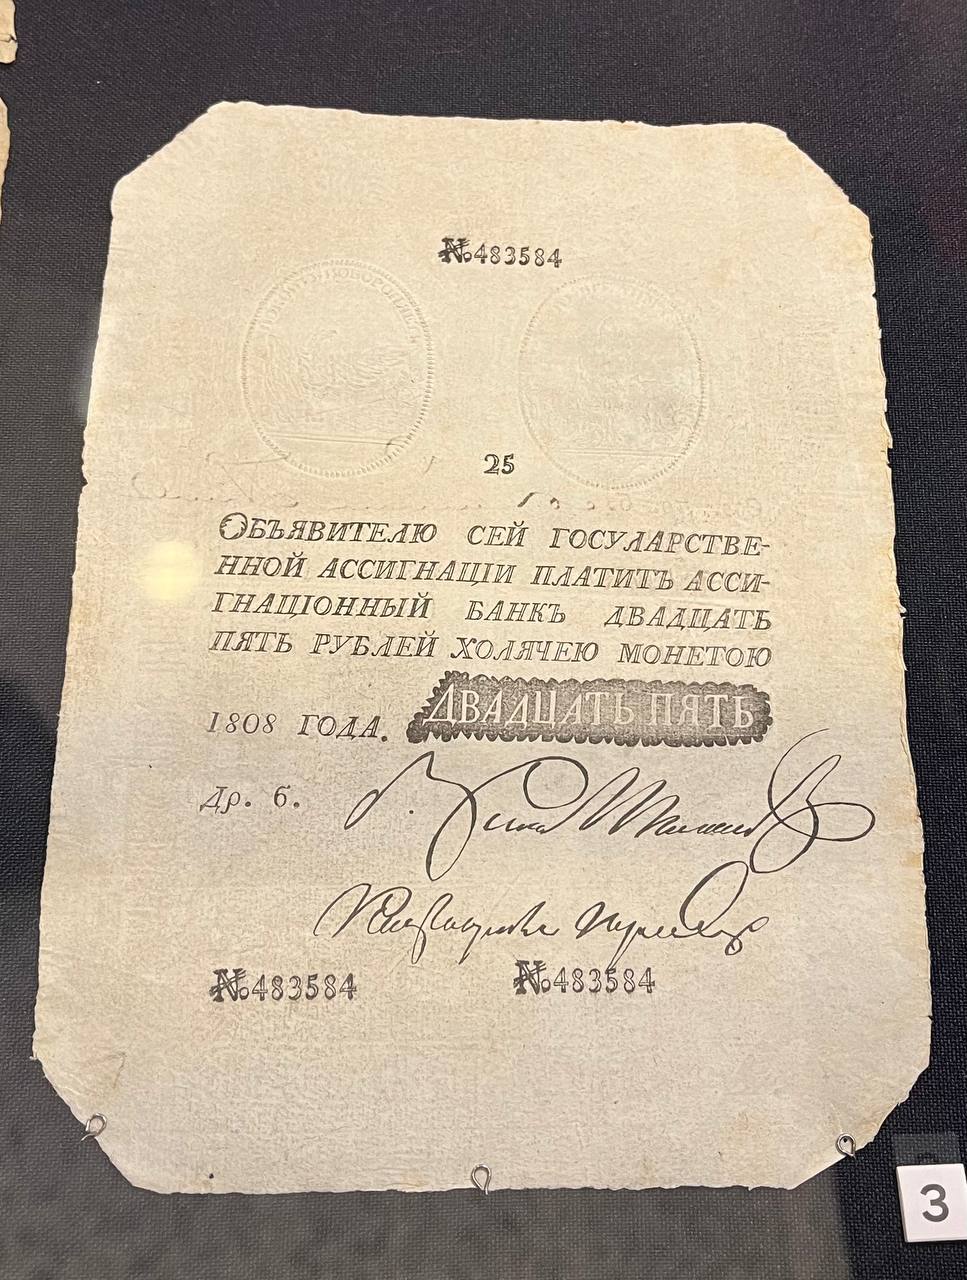 №.483584
25
ОБЪЯВИТЕЛЮ СЕЙ ГОСУЛАРСТВЕ-
ННОЙ АССИГНАЦІИ ПЛАТИТЪ АССИ-
ГНАЦІОННЫЙ БАНКЪ ДВАДЦАТЬ
ПЯТЬ РУБЛЕЙ ХОЛЯЧЕЮ МОНЕТОЮ
1808 ГОДА. ДВАДЦАТЬ ПЯТЬ
Др. б.
№.483584 №.483584
3